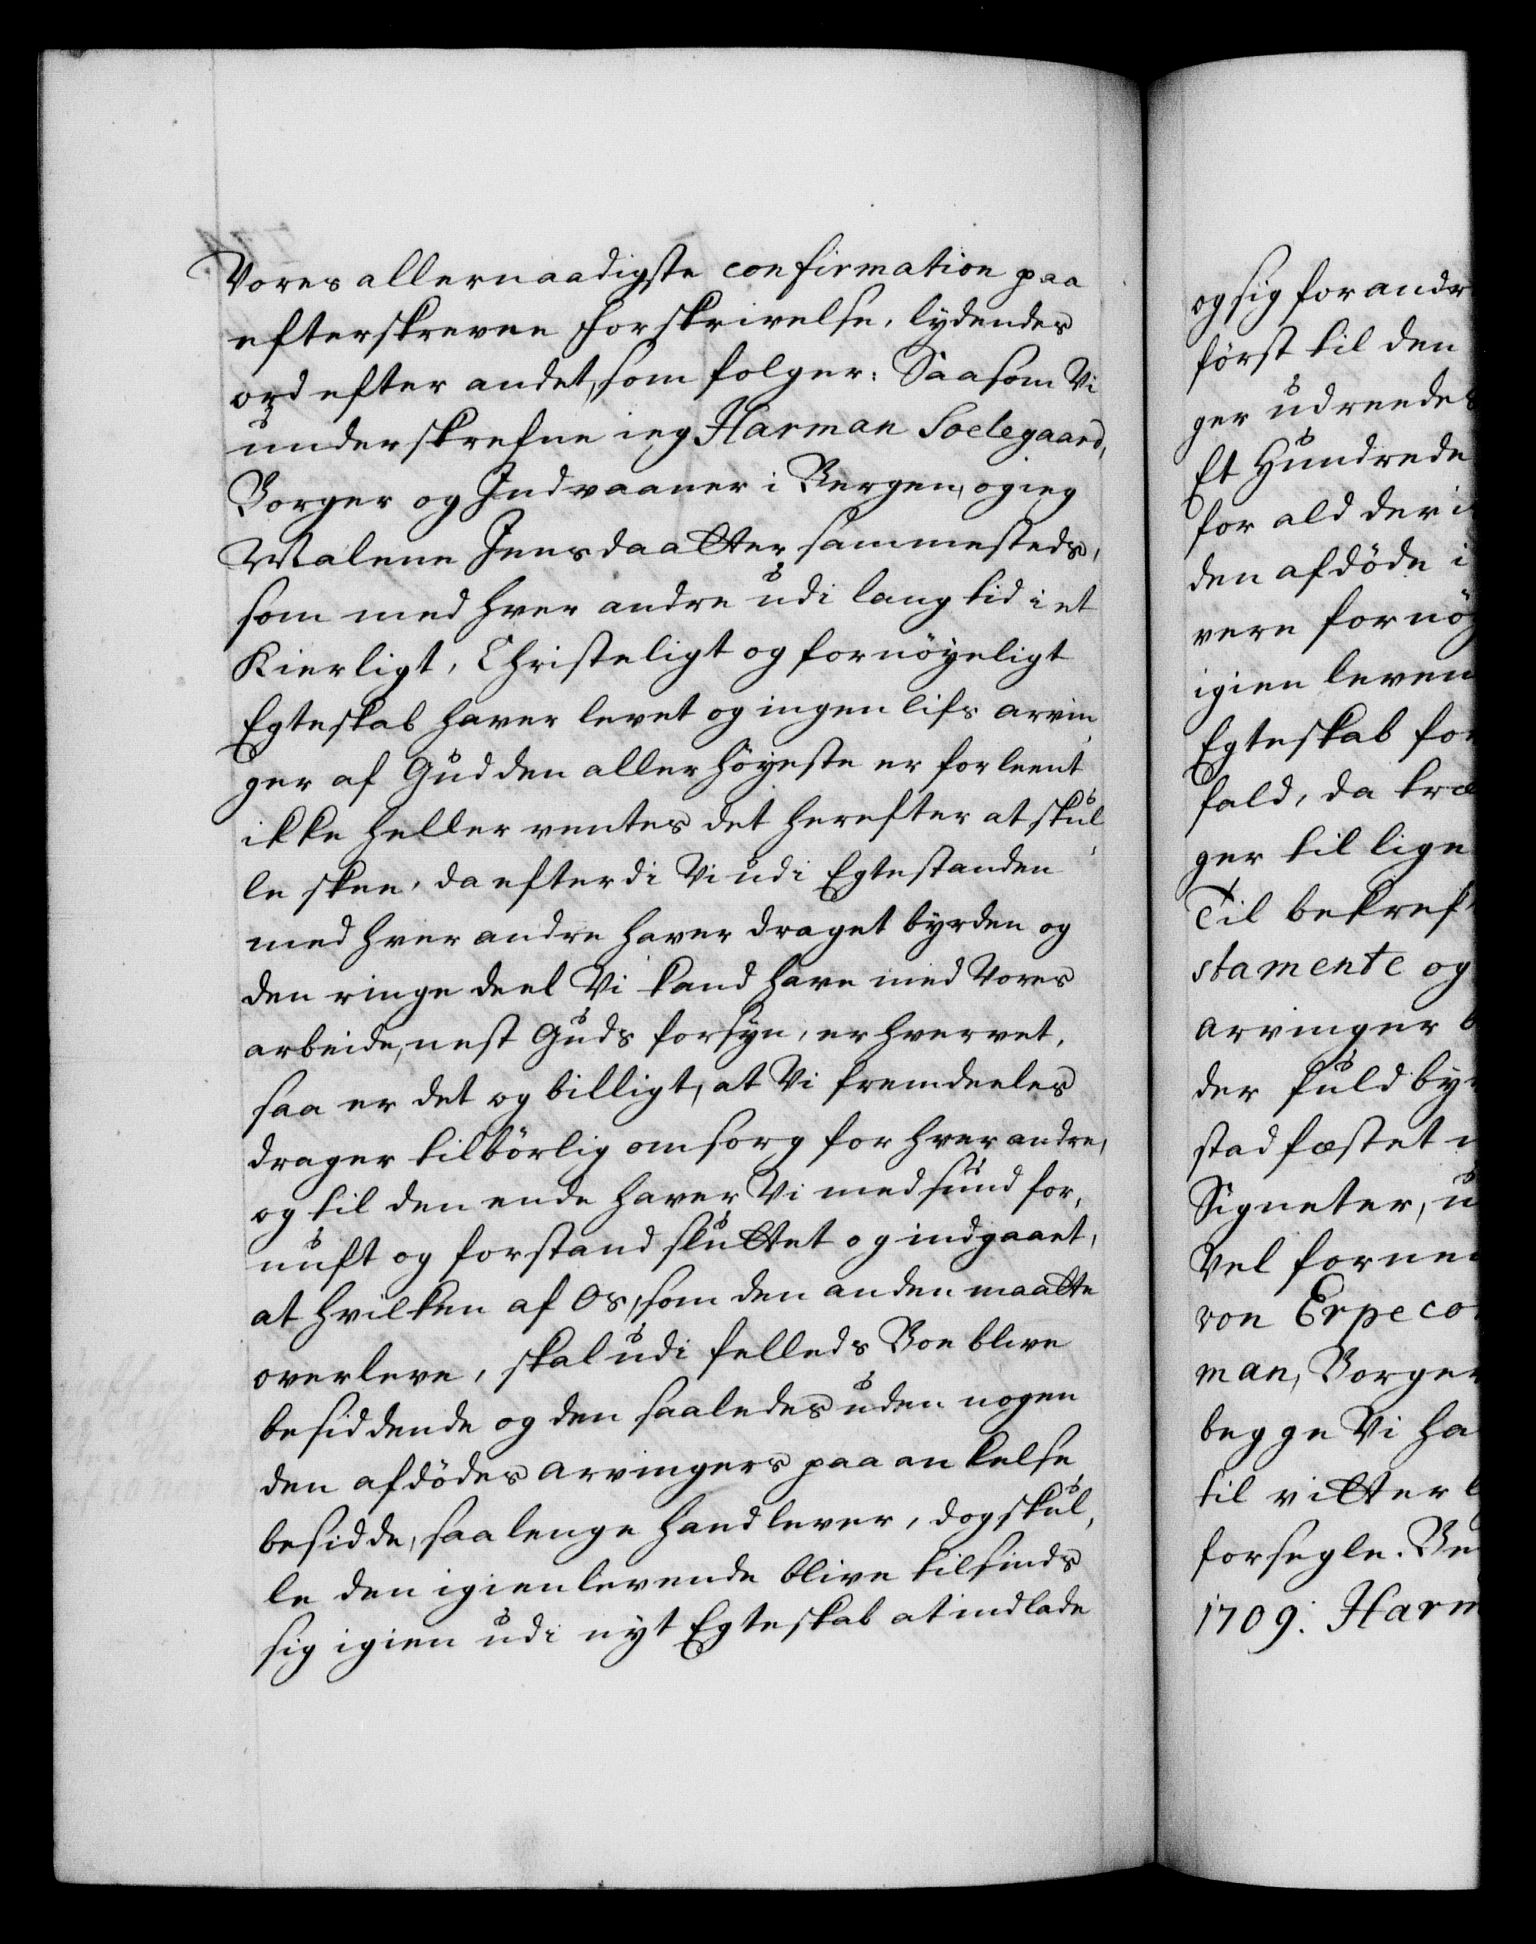 Vores allernaadigste confirmation paa
efterskrevne Forskrivelse, lydendes
ord efter andet, som folger: Saasom Vi
underskrefne ieg Harman Soelegaard,
Borger og Indvaaner i Bergen, og ieg
Malene Jensdaatter sammesteds,
som med hver andre udi lang tid i et
Kierligt, Christeligt og fornöyeligt
Egteskab haver levet og ingen lifs arvin
ger af Gud den allerhöyeste er forleent
ikke heller ventes det herefter at skul
le skee, da efterdi Vi udi Egtestanden
med hver andre haver draget byrden og
den ringe deel Vi kand have med Vores
arbeide, nest Guds forsyn, erhvervet,
saa er det og billigt, at Vi fremdeeles
drager tilbörlig omsorg for hver andre,
og til den ende haver Vi med sund for,
nuft og forstand sluttet og indgaaet,
at hvilken af Os, som den anden maatte
overleve, skal udi felleds Boe blive
besiddende og den saaledes uden nogen
den afdödes arvingers paaankelse
besidde, saalenge hand lever, dog skul,
le den igienlevende blive tilsinds
sig igien udi nyt Egteskab at indlade
og sig forandr
först til den
ger udreede
Et Hundrede
for ald der i
den afdöde i
vere fornöy
igien leven
Egteskab for
fald, da træ
ger til lige
Til bekref
stamente og
arvinger b
der fuldby
stadfæstet
Signeter, u
Vel forne
von Erpeco
man, Borger
begge Vi ha
til vitterl
forsegle. Be
1709. Harm